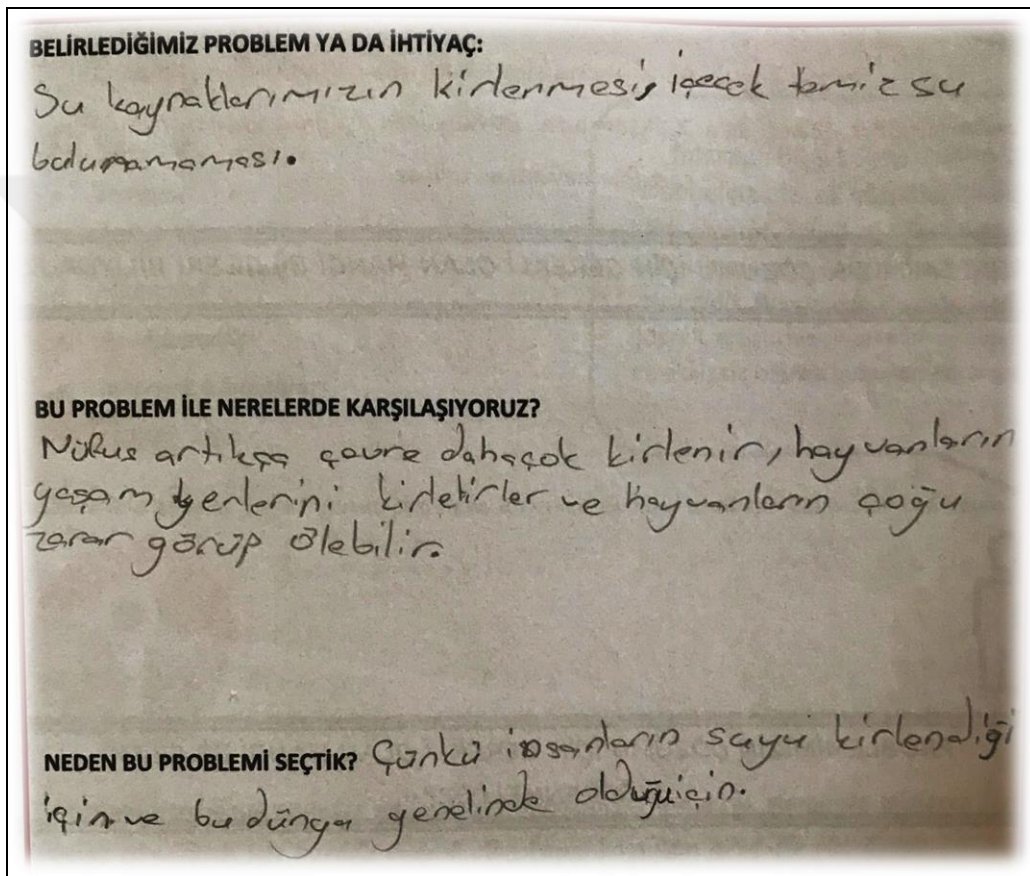 BELİRLEDİĞİMİZ PROBLEM YA DA İHTİYAÇ:
Su kaynaklarımızın kirlenmesi, içecek temiz su
bulunamaması.
BU PROBLEM İLE NERELERDE KARŞILAŞIYORUZ?
Nüfus artıkça çevre dahaçok kirlenir, hayvanların
yaşam yerlerini kirletirler ve hayvanların çoğu
zarar görüp ölebilir.
NEDEN BU PROBLEMİ SEÇTİK? Çünkü insanların suyu kirlendiği
için ve bu dünya genelinde olduğuiçin.